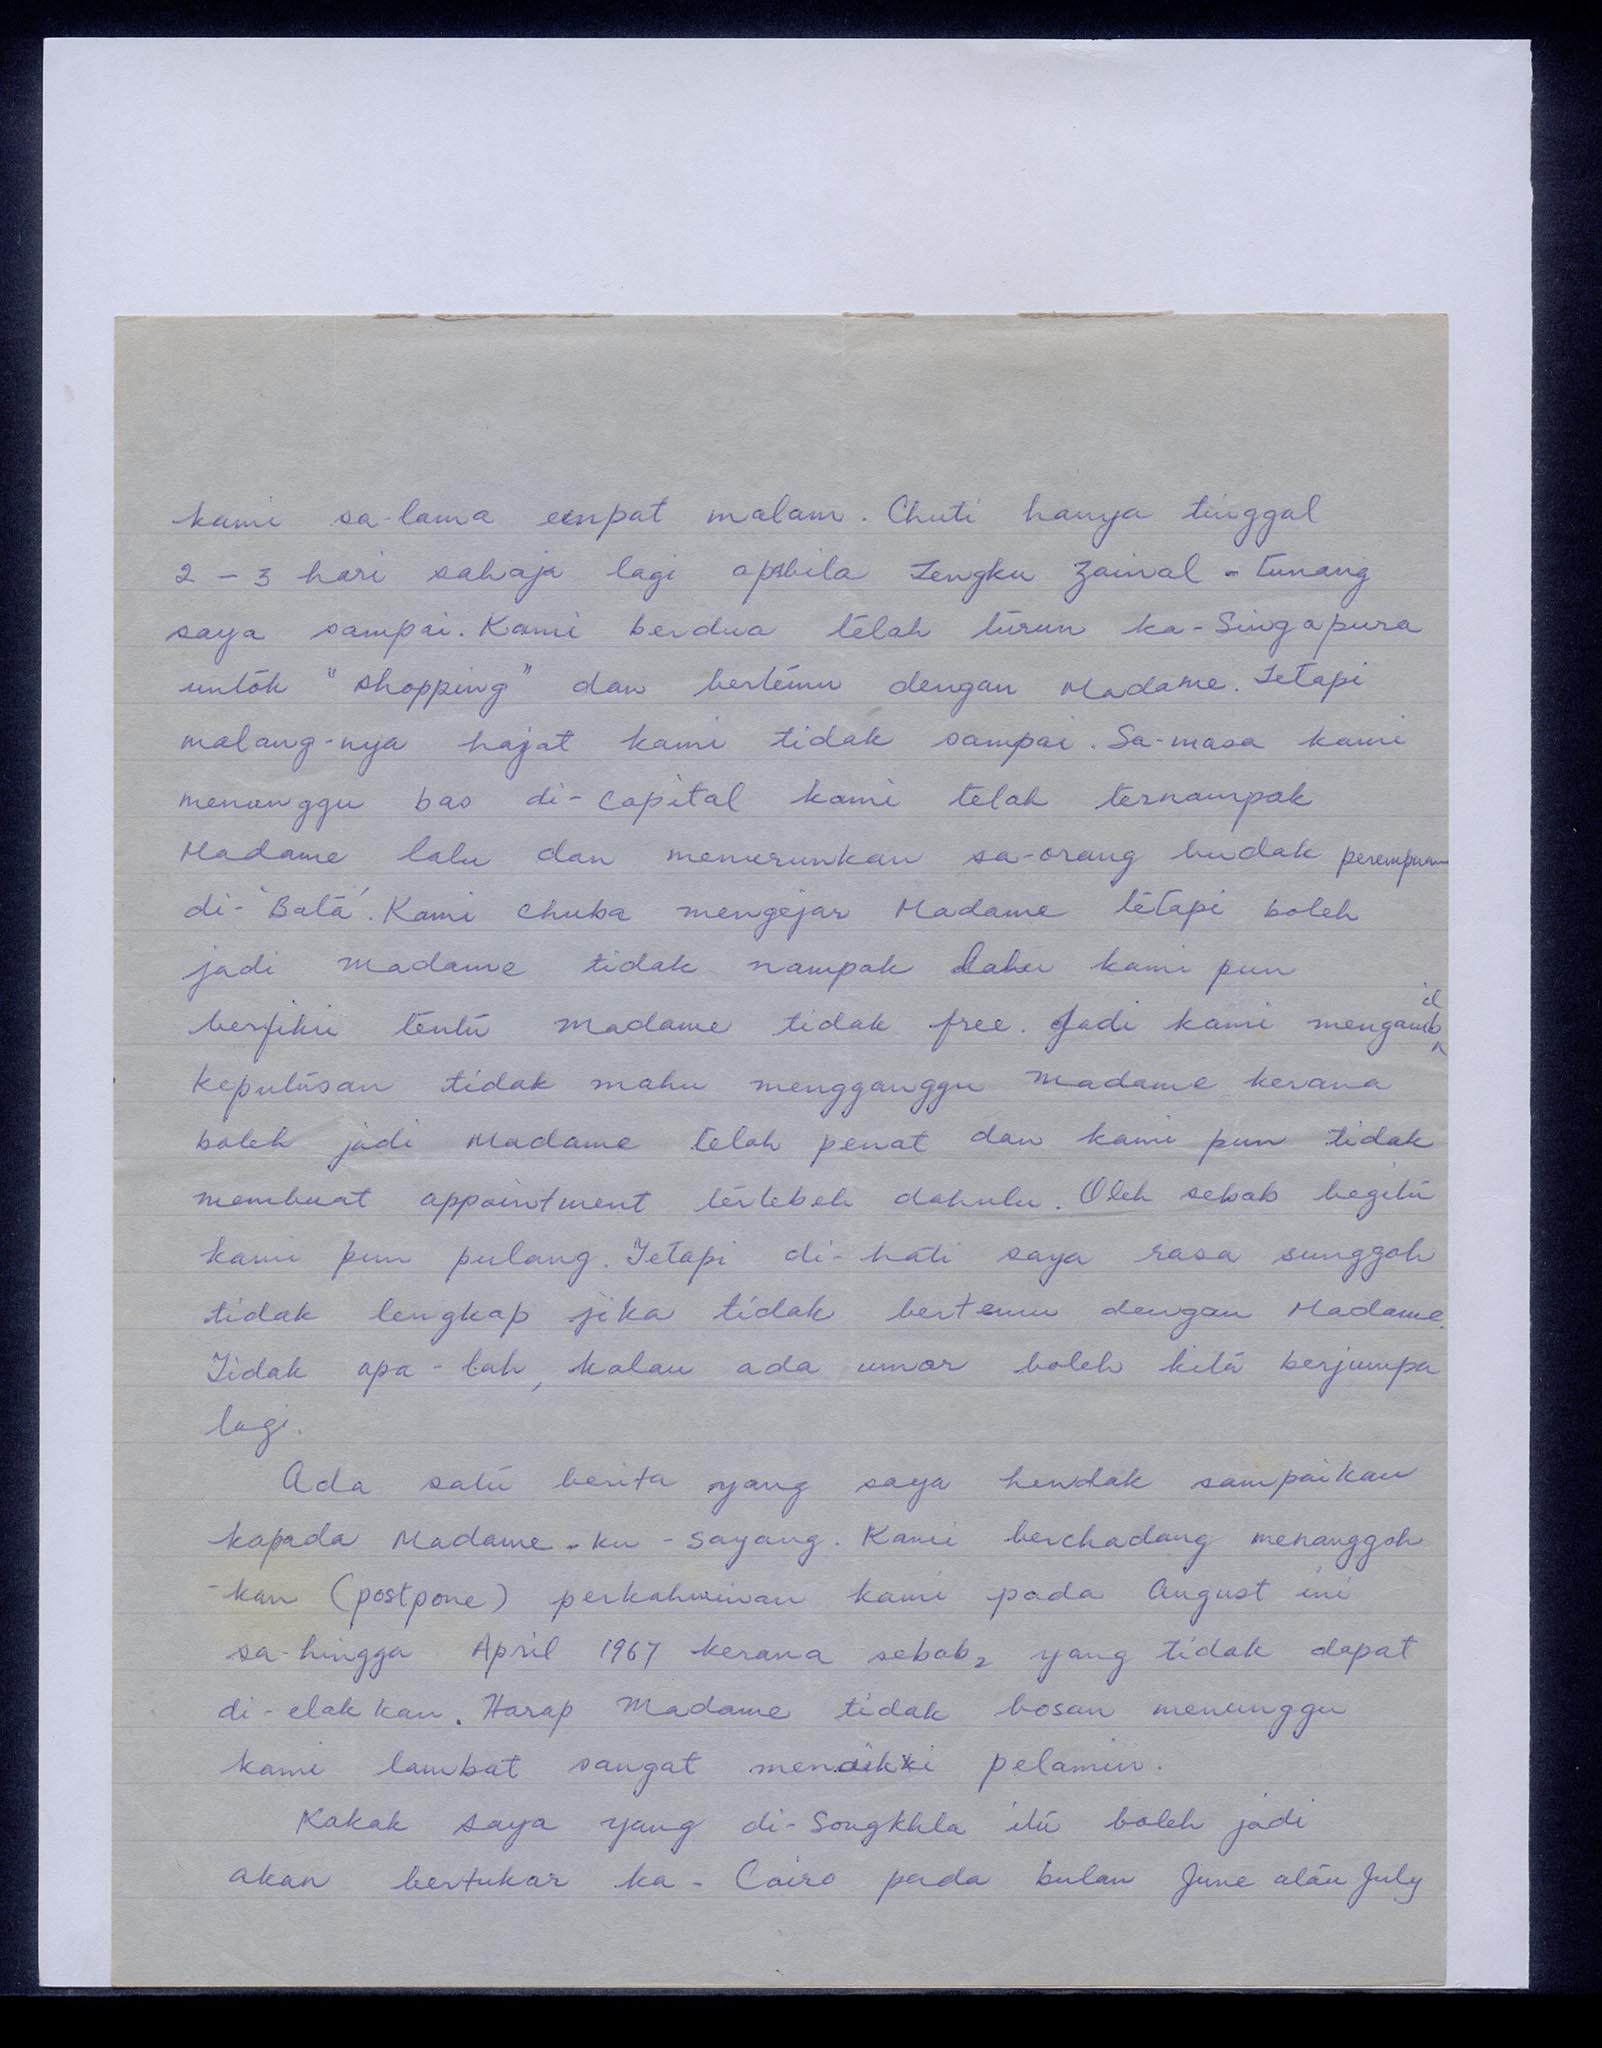 kami sa-lama empat malam. Chuti hanya tinggal
2 - 3 hari sahaja lagi apabila Tengku Zainal - tunang
saya sampai. Kami berdua telah turun ka-Singapura
untok "shopping" dan bertemu dengan Madame. Tetapi
malang-nya hajat kami tidak sampai. Sa-masa kami
menunggu bas di-Capital kami telah ternampak
Madame lalu dan menurunkan sa-orang budak perempuan
di-'Bata'. Kami chuba mengejar Madame tetapi boleh
jadi Madame tidak nampak lalu kami pun
berfikir tentu Madame tidak free. Jadi kami mengambil
keputusan tidak mahu mengganggu Madame kerana
boleh jadi Madame telah penat dan kami pun tidak
membuat appointment terlebeh dahulu. Oleh sebab begitu
kami pun pulang. Tetapi di-hati saya rasa sunggoh
tidak lengkap jika tidak bertemu dengan Madame.
Tidak apa-lah, kalau ada umor boleh kita berjumpa
lagi.
Ada satu berita yang saya hendak sampaikan
kapada Madame-ku-Sayang. Kami berchadang menanggoh
-kan (postpone) perkahwinan kami pada August ini
sa-hingga April 1967 kerana sebab2 yang tidak dapat
di-elakkan. Harap Madame tidak bosan menunggu
kami lambat sangat menaiki pelamin.
Kakak saya yang di-Songkhla itu boleh jadi
akan bertukar ka-Cairo pada bulan June atau July